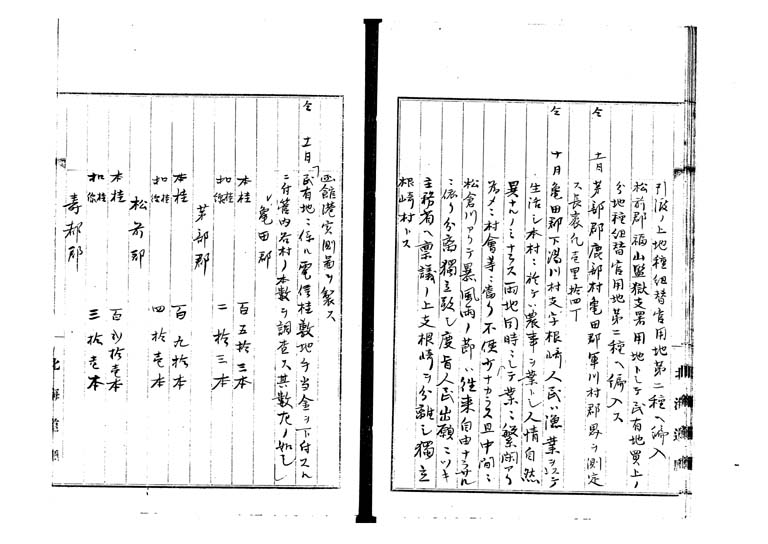 引渡ノ上地種組替官用地第二種ヘ編入
松前郡福山監獄支署用地トシテ民有地買上ノ
分地種組替官用地第二種ヘ編入ス
仝 十一月 茅部郡鹿部村亀田郡軍川村郡界ヲ測定
ス長裹化壱里拾四丁
仝 十月 亀田郡下湯川村支字根崎人民ハ漁業ヲ以テ
生活シ本村ニ於テハ農事ヲ業トシ人情自然
異ナルノミナラス両地同時ニシテ業ニ繁閑アリ
為メニ村會等ニ當リ不便少ナカラス且中間ニ
松倉川アリテ暴風雨ノ節ハ往来自由ナラサル
ニ依リ分離獨立致シ度旨人民出願ニツキ
主務省ヘ稟議ノ上支根崎ヲ分離シ獨立
根崎村トス
北海道廳
函館港実測図ヲ製ス
仝 十一月 民有地ニ係ル電信柱敷地手当金ヲ下付スル
ニ付管内各村ノ本数ヲ調査ス其数左ノ如シ
亀田郡
本柱 百五拾三本
扣柱 二拾三本
茅部郡
本柱 百九拾本
扣柱 四拾壱本
松前郡
本柱 百弐拾壱本
扣柱 三拾壱本
壽都郡
北海道廳